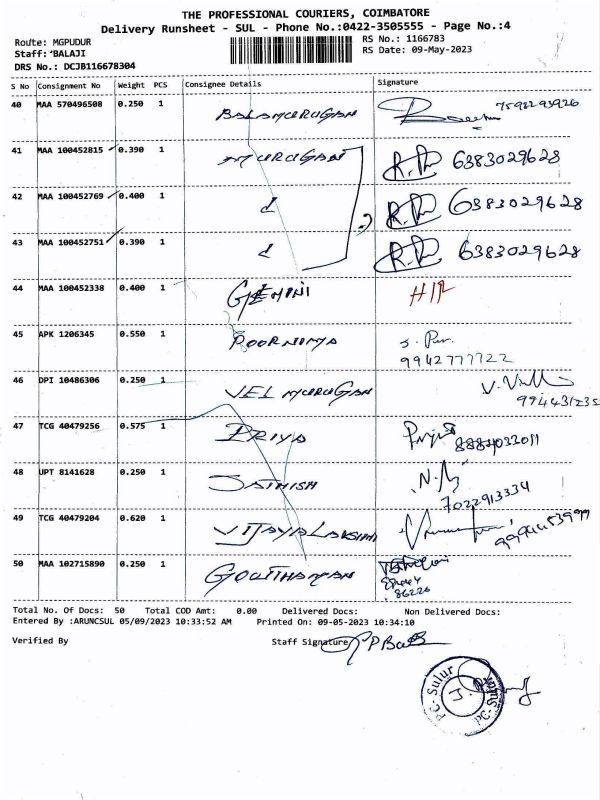 THE PROFESSIONAL COURIERS, COIMBATORE
Delivery Runsheet - SUL - Phone No.:0422-3505555 - Page No.:4
Route: MGPUDUR RS No.: 1166783
Staff: BALAJI RS Date: 09-May-2023
DRS No.: DCJB116678304
S No Consignment No Weight PCS Consignee Details Signature
40 MAA 570496508 0.250 1 BALAMURUGAN 7592293926
41 MAA 100452815 0.390 1 MURUGAN 6383029628
42 MAA 100452769 0.400 1 6383029628
43 MAA 100452751 0.390 1 6383029628
44 MAA 100452338 0.400 1 GEMINI
45 APK 1206345 0.550 1 POORNIMA
9942777722
46 DPI 10486306 0.250 1 VEL MURUGAN
994431235
47 TCG 40479256 0.575 1 PRIYA
48 UPT 8141628 0.250 1 SATHISH
7022913334
49 TCG 40479204 0.620 1 VIJAYALAKSHMI
50 MAA 102715890 0.250 1 GOUTHAMAN
86226
Total No. Of Docs: 50 Total COD Amt: 0.00 Delivered Docs: Non Delivered Docs:
Entered By :ARUNCSUL 05/09/2023 10:33:52 AM Printed On: 09-05-2023 10:34:10
Verified By Staff Signature
PC-Sulur